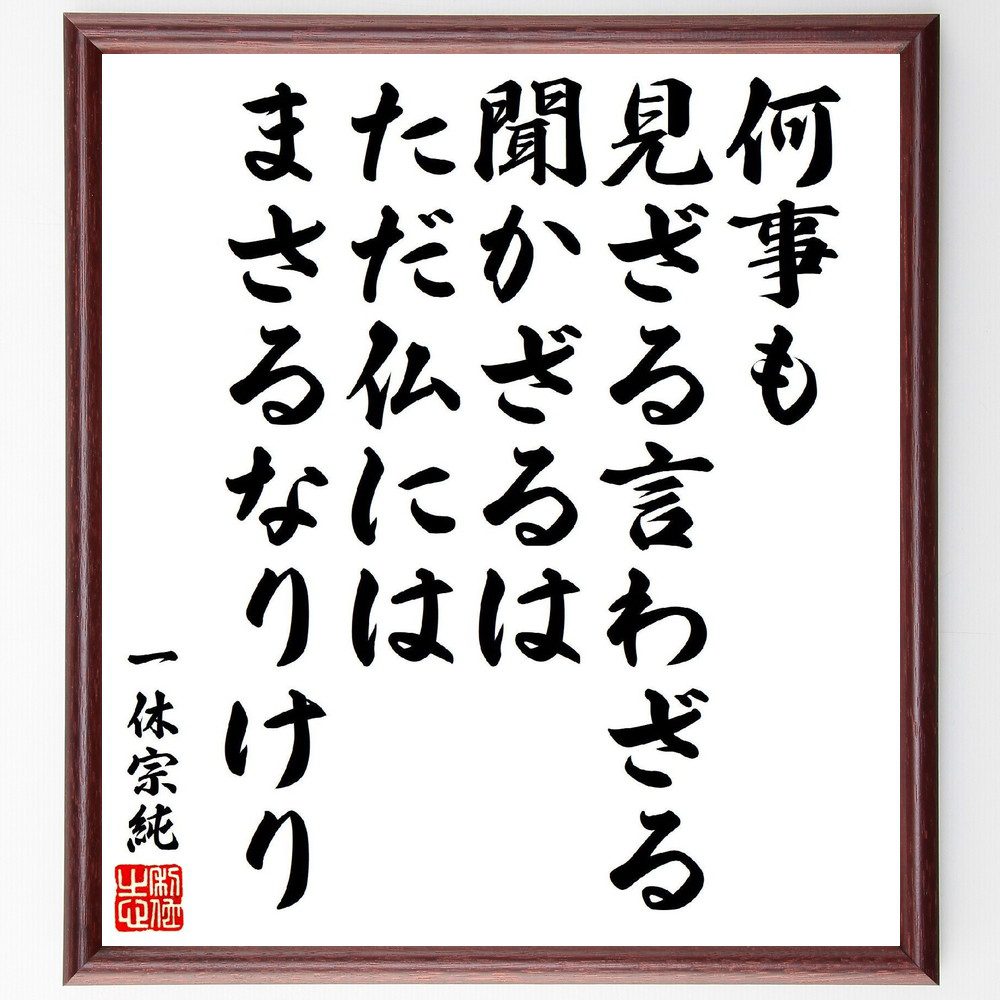 何事も
見ざる言わざる
聞かざるは
ただ仏には
まさるなりけり
一休宗純